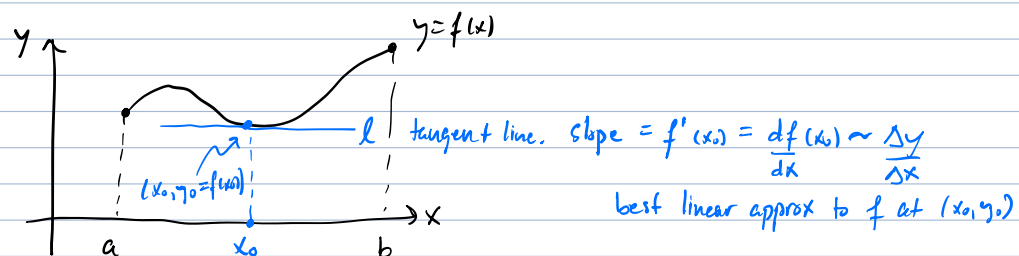 y
y=f(x)
l tangent line. slope = f'(x₀) = df/dx (x₀) ~ Δy/Δx
(x₀,y₀=f(x₀))
best linear approx to f at (x₀,y₀)
x
a x₀ b